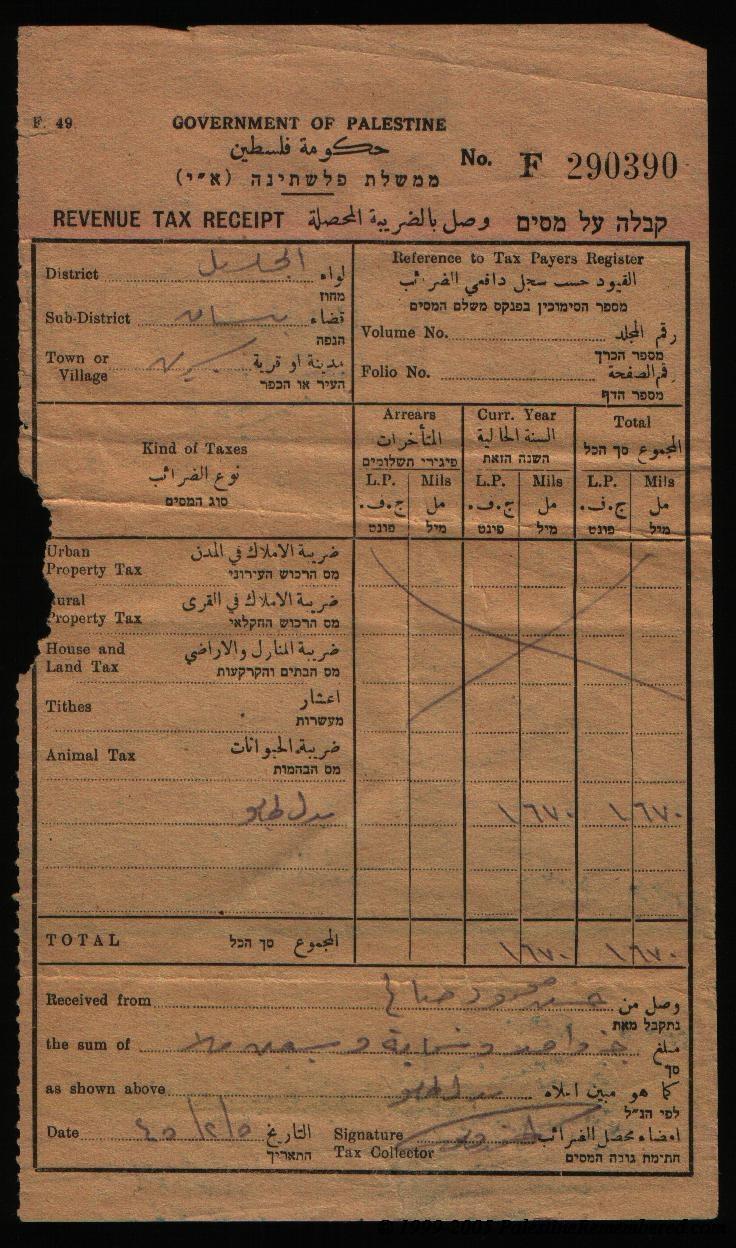 F. 49.
GOVERNMENT OF PALESTINE
حكومة فلسطين
ממשלת פלשתינה (א״י)
No. F 290390
REVENUE TAX RECEIPT وصل بالضريبة المحصلة קבלה על מסים
District الجليل لواء
מחוז
Sub-District بيسان قضاء
הנפה
Town or Village مدينة او قرية
העיר או הכפר
Reference to Tax Payers Register
القيود حسب سجل دافعي الضرائب
מספר הסימוכין בפנקס משלם המסים
Volume No. رقم المجلد
מספר הכרך
Folio No. رقم الصفحة
מספר הדף
Kind of Taxes
نوع الضرائب
סוג המסים
Arrears
المتأخرات
פיגורי תשלומים
Curr. Year
السنة الحالية
השנה הזאת
Total
المجموع סך הכל
L.P. Mils L.P. Mils L.P. Mils
ج.ف. مل ج.ف. مل ج.ف. مل
פונט מיל פונט מיל פונט מיל
Urban Property Tax ضريبة الاملاك في المدن
מס הרכוש העירוני
Rural Property Tax ضريبة الاملاك في القرى
מס הרכוש החקלאי
House and Land Tax ضريبة المنازل والاراضي
מס הבתים והקרקעות
Tithes اعشار
מעשרות
Animal Tax ضريبة الحيوانات
מס הבהמות
بدل طابو ١ ٦٧٠ ١ ٦٧٠
TOTAL סך הכל المجموع ١ ٦٧٠ ١ ٦٧٠
Received from محمود صالح وصل من
נתקבל מאת
the sum of واحد وستماية وسبعين مل مبلغ
סך
as shown above بدل طابو كما هو مبين اعلاه
לפי הנ״ל
Date ٤٥/٢/٥ التاريخ
התאריך
Signature Tax Collector امضاء محصل الضرائب
חתימת גובה המסים
© 1999-2005 PalestineRemembered.com